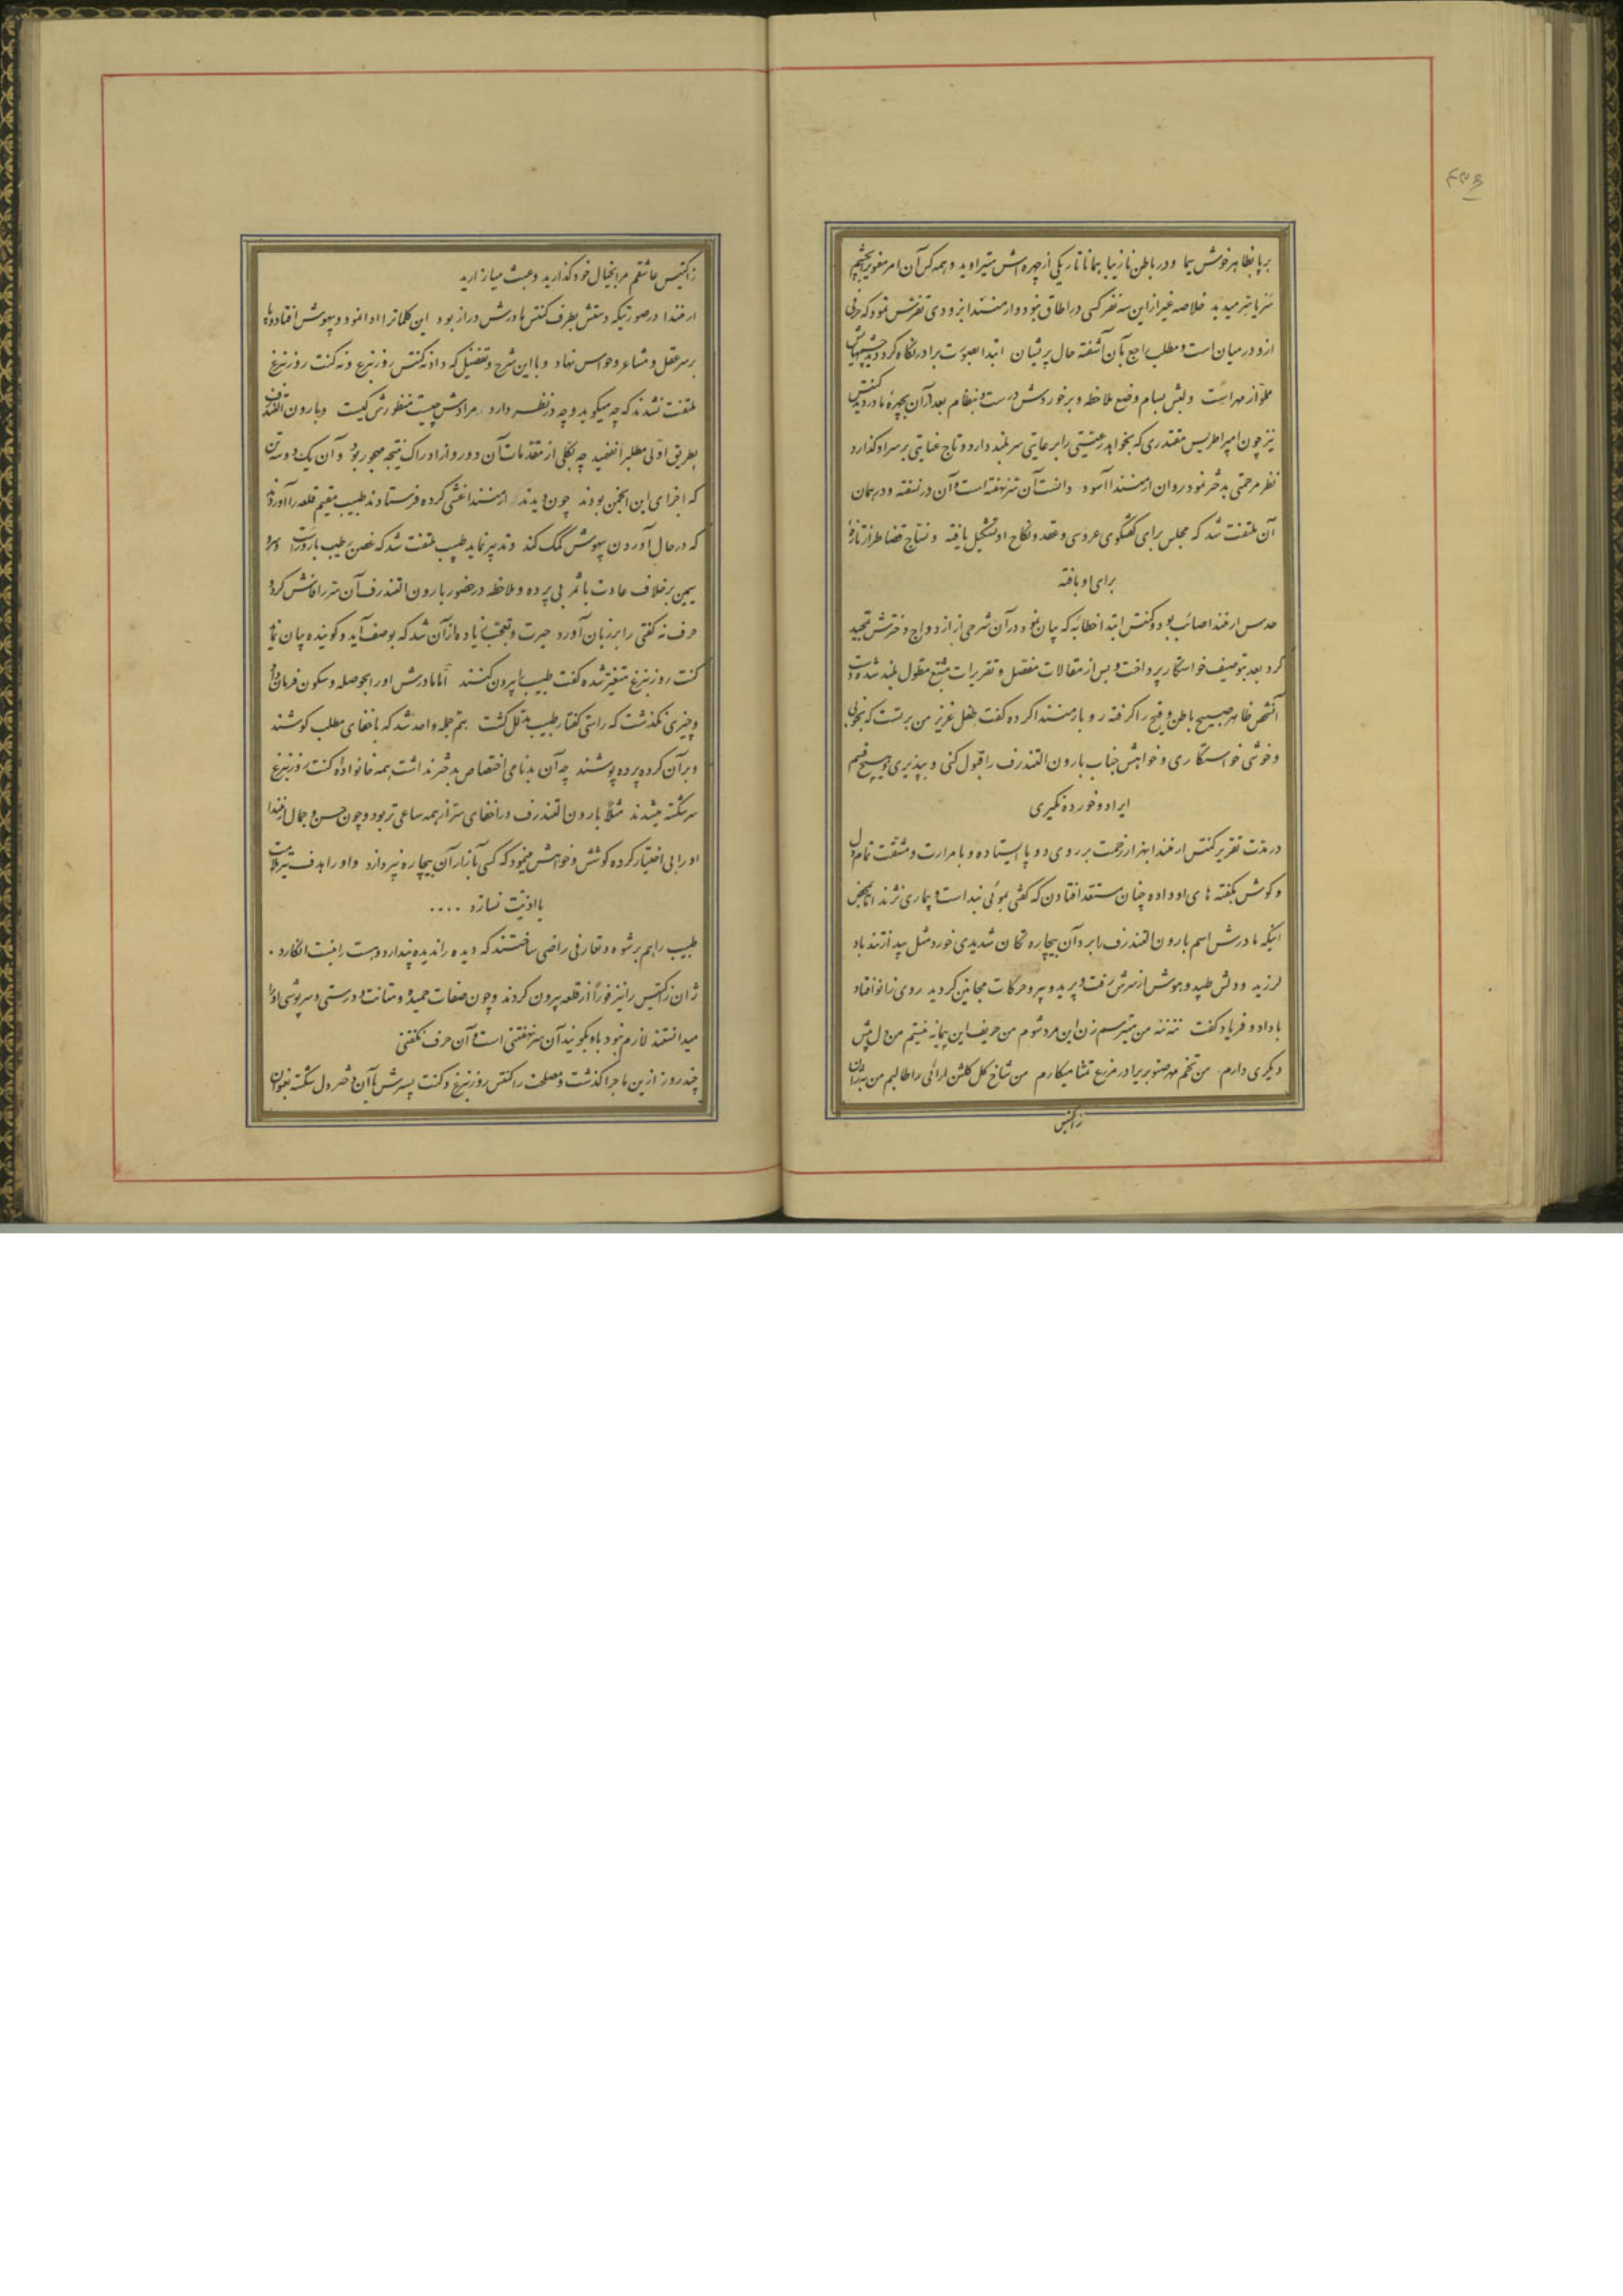 ۴۳۶
برپا بظاهر خوش سیما و در باطن نازیبا همانا تاریکی از چهره‌اش میتراوید و همه کس آن امر مغویرا بچشم
سر یا سر میدید خلاصه غیر از این سه نفر کسی در اطاق نبود و ارمنندا بزودی تفرس نمود که حرفی
ازو در میان است و مطلب راجع بآن آشفته حال پریشان ابتدا بصورت برادر نگاه کرد و دید چشمهایش
مملو از مهر است و لبش بسام وضع ملاحظه و برخوردش درست و بنظام بعد از آن بچهره مادر دید کنتس
نیز چون امپراطریس مقتدری که بخواهد رعیتی را برعایتی سربلند دارد و تاج عنایتی بر سر او گذارد
نظر مرحمتی بدختر نمود روان ارمنندا آسود دانست آن سر نهفته است و آن در نسفته و در همان
آن ملتفت شد که مجلس برای گفتگوی عروسی و عقد و نکاح او تشکیل یافته و نساج قضا طراز تازهٔ
برای او بافته
حدس ارمنندا صائب بود و کنتس ابتدا خطابهٔ که بیان نمود در آن شرحی از ازدواج دخترش تمجید
کرد بعد بتوصیف خواستگار پرداخت و پس از مقالات مفصل و تقریرات مشبع مطول بلند شده دست
آنشخص ظاهر صبیح باطن وقیح را گرفته رو بارمنندا کرده گفت طفل عزیز من بر تست که بخوبی
و خوشی خواستگاری و خواهش جناب بارون التندرف را قبول کنی و بپذیری و هیچ قسم
ایراد و خورده نگیری
در مدت تقریر کنتس ارمنندا بهزار زحمت بر روی دو پا ایستاده و با مرارت و مشقت تمام دل
و گوش بگفته های او داده چنان مستعد افتادن که گفتی بموئی بند است و بیماری نژند اما بمحض
اینکه مادرش اسم بارون التندرف را برد آن بیچاره تکان شدیدی خورد مثل بید از تند باد
لرزید و دلش طپید و هوش از سرش رفت و پرید و پیرو حرکات مجانین گردید روی زانو افتاد
با داد و فریاد گفت ننه ننه من میترسم زن این مرد شوم من حریف این پیمانه نیستم من دل پیش
دیگری دارم من تخم مهر صنوبریرا در مزرع تمنا میکارم من شاخ گل گلشن لرائی را طالبم من بژان
زاکتیس
زاکتیس عاشقم مرا بخیال خود گذارید و عبث میازارید
ارمنندا در صورتیکه دستش بطرف کنتس مادرش دراز بود این کلماترا ادا نمود و بیهوش افتاد و پا
بر سر عقل و مشاعر و حواس نهاد و با این شرح و تفضیل که داد نه کنتس روزنبرغ و نه کنت روزنبرغ
ملتفت نشدند که چه میگوید و چه در نظر دارد مرادش چیست منظورش کیست و بارون التندرف
بطریق اولی مطلبرا نفهمید چه بکلی از مقدمات آن دور و از ادراک نتیجه مهجور بود و آن یک دو سه تن
که اجزای این انجمن بودند چون دیدند ارمنندا غشی کرده فرستادند طبیب مقیم قلعه را آوردند
که در حال آوردن بیهوش کمک کند و تدبیر نماید طبیب ملتفت شد که غصن رطیب بارور است و سرو
سیمین بر خلاف عادت با ثمر بی پرده و ملاحظه در حضور بارون التندرف آن سر را فاش کرد و
حرف نه گفتی را بر زبان آورد حیرت و تعجب زیاده از آن شد که بوصف آید و گوینده بیان نماید
کنت روزنبرغ متغیر شده گفت طبیب را بیرون کنند اما مادرش او را بحوصله و سکون فرمان داد
و چیزی نگذشت که راستی گفتار طبیب مدلل گشت هم جمله واحد شد که باخفای مطلب کوشند
و بر آن کرده پرده پوشند چه آن بدنامی اختصاص بدختر نداشت همه خانواده کنت روزنبرغ
سرشکسته میشدند مثلا بارون التندرف در اخفای سر از همه ساعی تر بود و چون حسن و جمال ارمنندا
او را بی اختیار کرده کوشش و خواهش مینمود که کسی بآزار آن بیچاره نپردازد و او را هدف تیر ملامت
یا اذیت نسازد ....
طبیب را هم برشوه و تعارفی راضی ساختند که دیده را ندیده پندارد و هست را نیست انگارد .
ژان زاکتیس را نیز فوراً از قلعه بیرون کردند و چون صفات حمیده و متانت و درستی و سرپوشی او را
میدانستند لازم نبود باو بگویند آن سر نهفتنی است و آن حرف نگفتنی
چند روز ازین ماجرا گذشت و مصلحت را کنتس روزنبرغ و کنت پسرش با آن دختر دل شکسته بعنوان